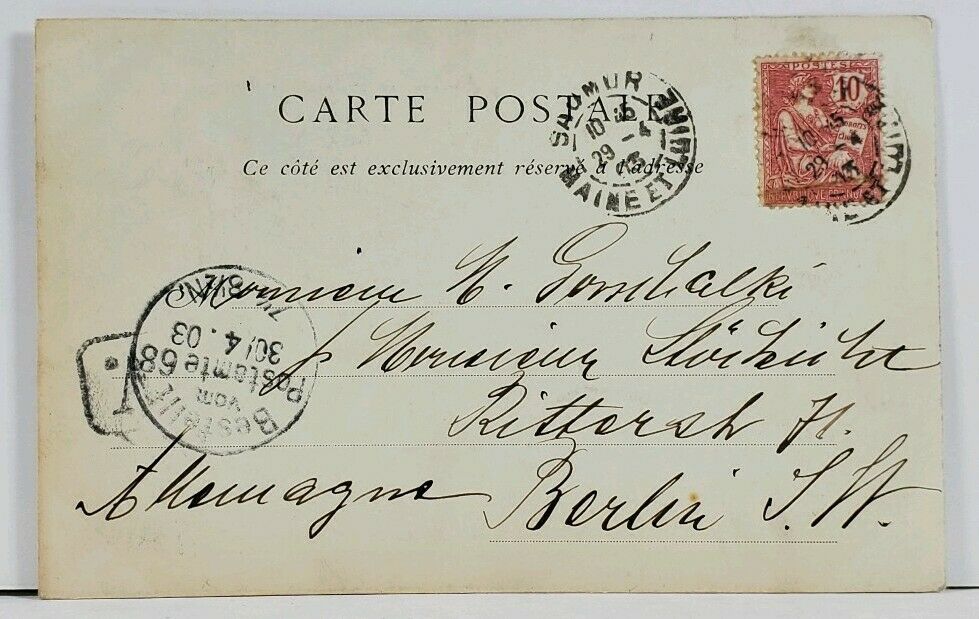 CARTE POSTALE
Ce côté est exclusivement réservé à l'adresse
SAUMUR
10 35
29 -4
03
MAINE ET LOIRE
POSTES
10
Monsieur M. Gombalki
p/ Monsieur
Ritterstr 71.
Allemagne Berlin S. W.
Bestellt
vom
Postamte 68
30/4.03
T